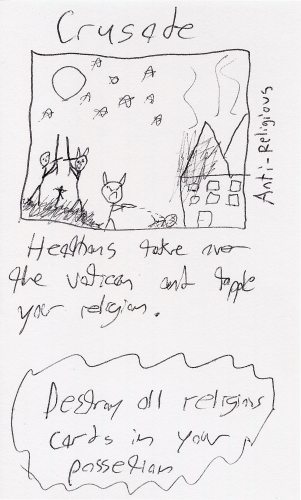 Crusade
Anti-Religious
Heathans take over
the vatican and topple
your religion.
Destroy all religious
cards in your
possetian